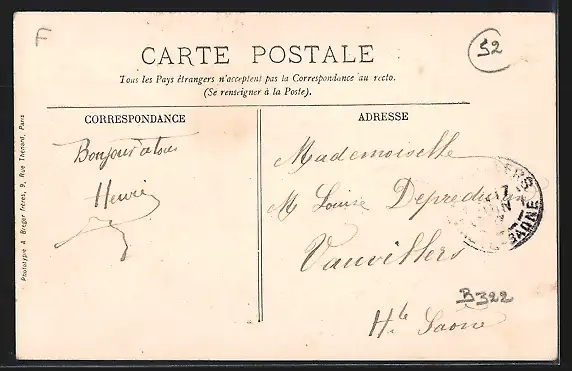 F
52
CARTE POSTALE
Tous les Pays étrangers n'acceptent pas la Correspondance au recto.
(Se renseigner à la Poste).
CORRESPONDANCE
ADRESSE
Bonjour à tous
Henri
Mademoiselle
M Louise
Vauvillers
Hte Saône
B322
17
SAONE
Phototypie A Breger frères, 9, Rue Thénard, Paris